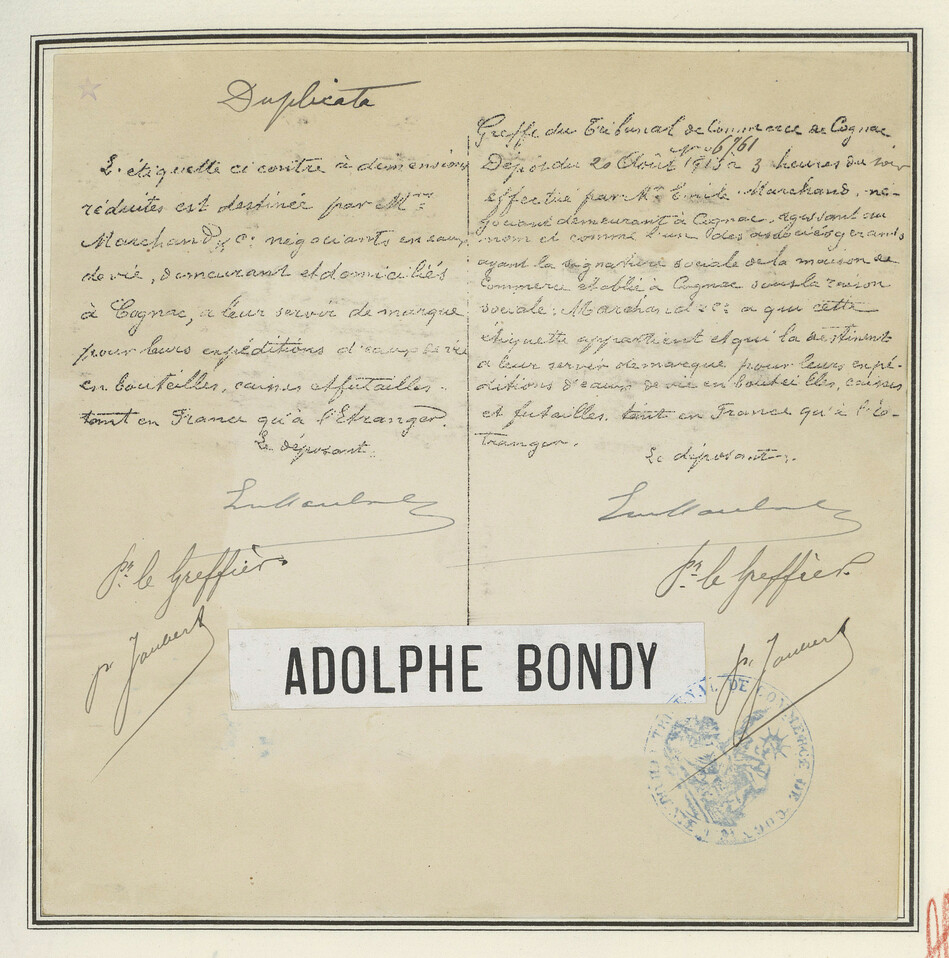 Duplicata
L'étiquette ci contre à dimensions
réduites est destinée par M.rs
Marchand & Cie négociants en eaux
de vie, demeurant et domiciliés
à Cognac, a leur servir de marque
pour leurs expéditions d'eaux de vie
en bouteilles, caisses et futailles.
tant en France qu'à l'Etranger.
Le déposant.
pr le Greffier
pr Joubert
Greffe du Tribunal de Commerce de Cognac
6761
Dépot du 20 Août 1913 a 3 heures du soir
effectué par Mr Emile Marchand, né-
gociant demeurant à Cognac. agissant au
nom et comme l'un des associés gérants
ayant la signature sociale de la maison de
Commerce établie à Cognac sous la raison
sociale: Marchand & Cie a qui cette
étiquette appartient et qui la destinent
a leur servir de marque pour leurs expé-
ditions d'eaux de vie en bouteilles, caisses
et futailles. tant en France qu'à l'é-
tranger.
Le déposant.
pr le Greffier.
pr Joubert
ADOLPHE BONDY
TRIBUNAL DE COMMERCE DE COGNAC